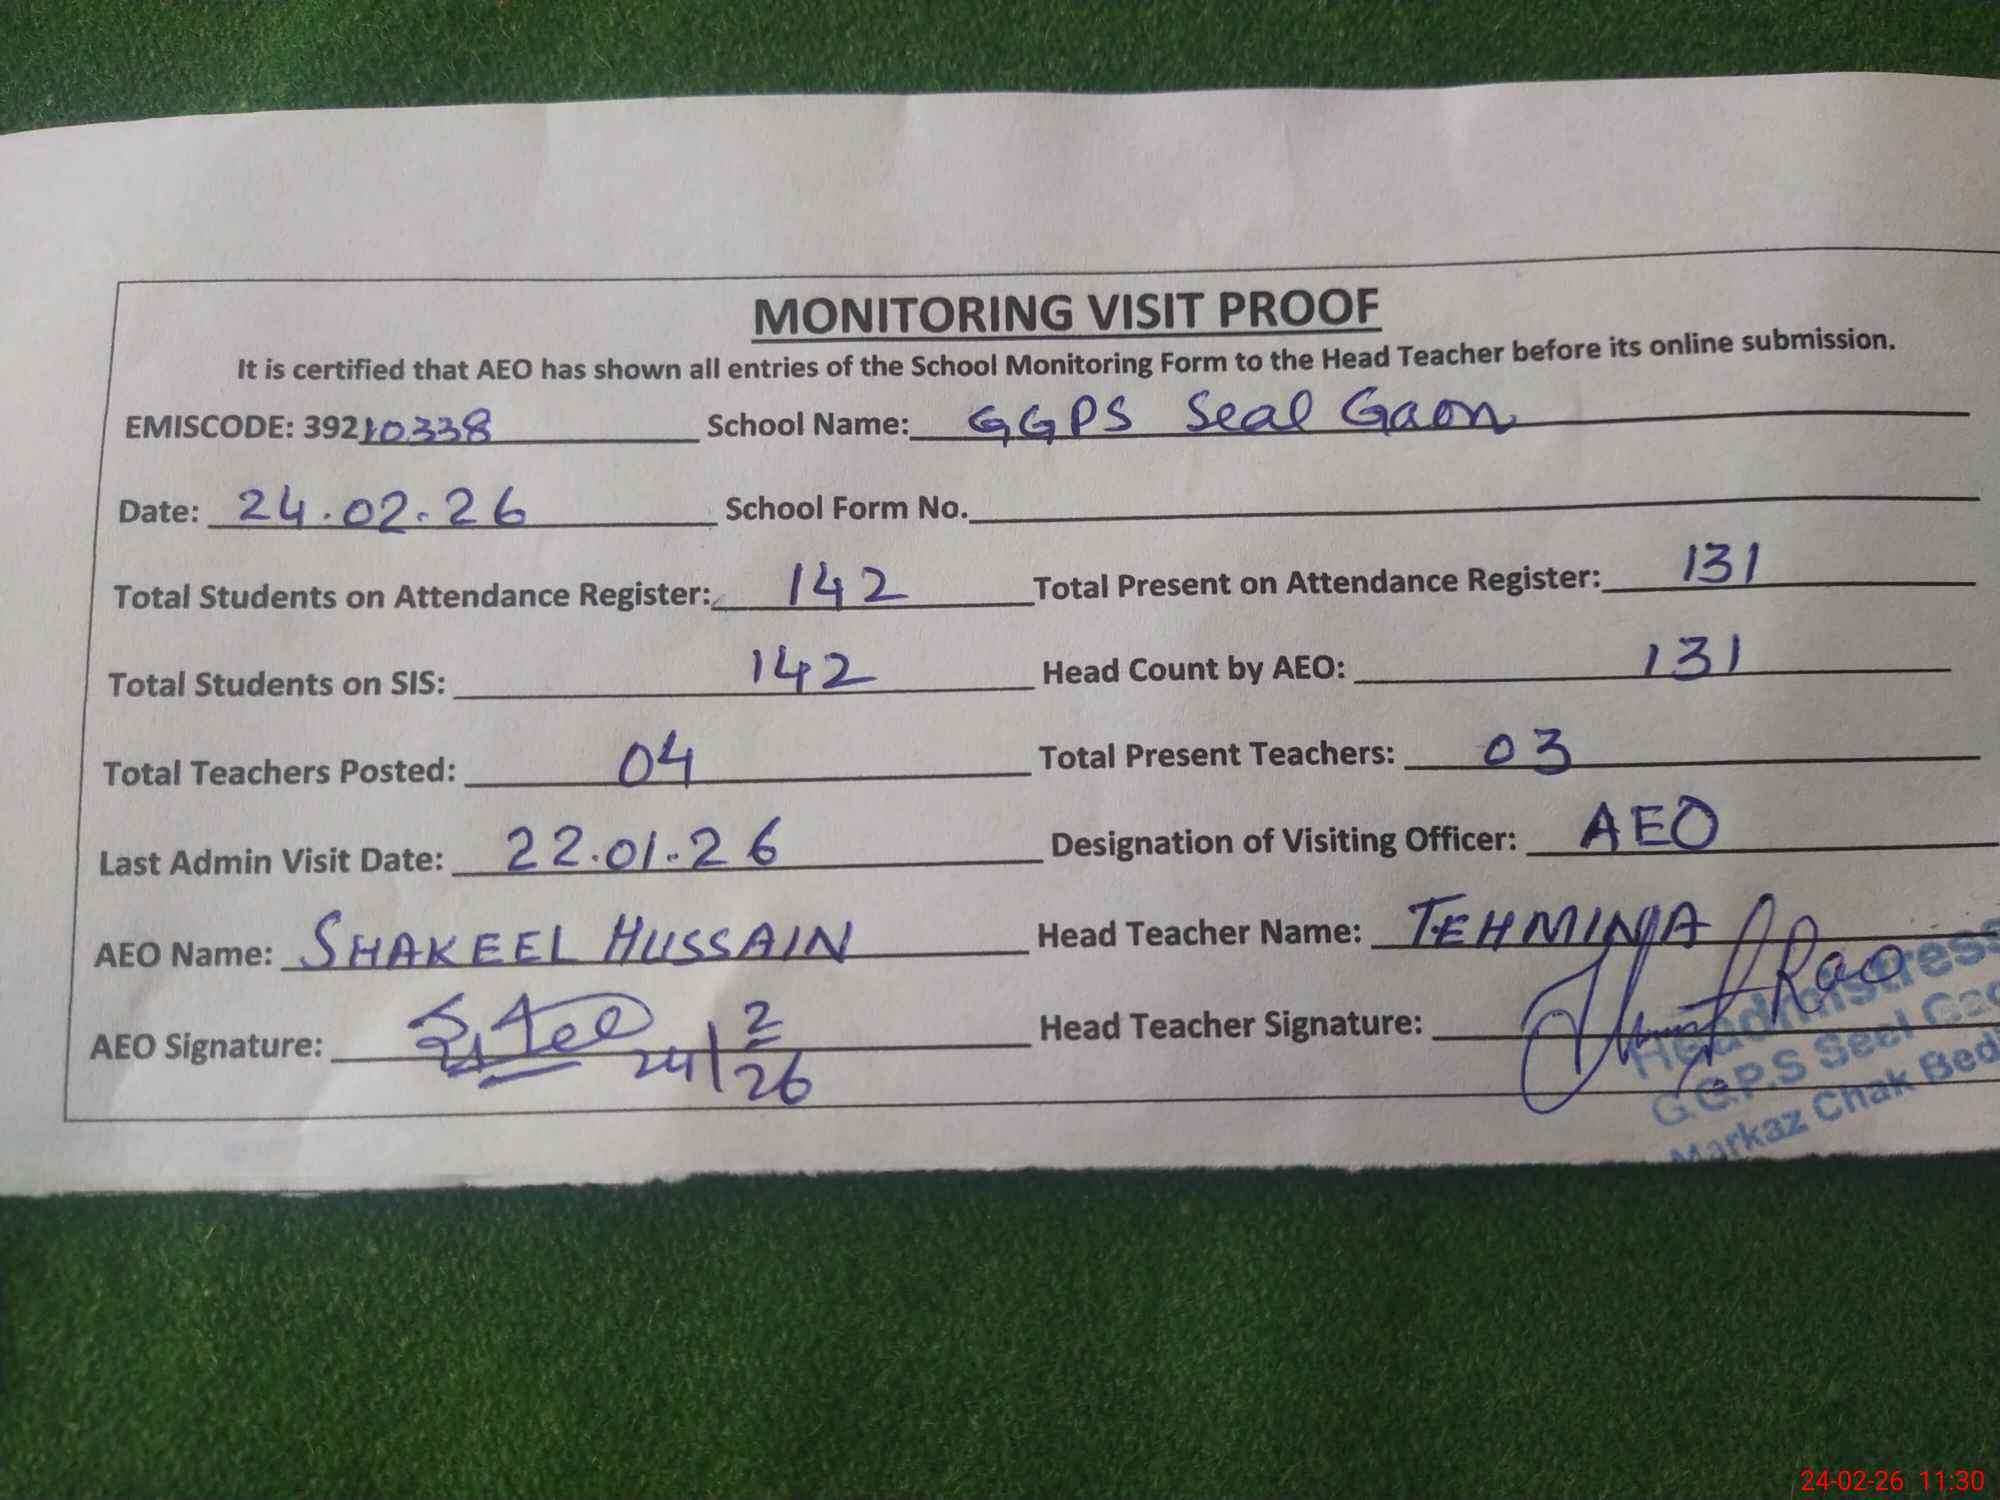 MONITORING VISIT PROOF
It is certified that AEO has shown all entries of the School Monitoring Form to the Head Teacher before its online submission.
EMISCODE: 39210338 School Name: GGPS Seal Gaon
Date: 24.02.26 School Form No.
Total Students on Attendance Register: 142 Total Present on Attendance Register: 131
Total Students on SIS: 142 Head Count by AEO: 131
Total Teachers Posted: 04 Total Present Teachers: 03
Last Admin Visit Date: 22.01.26 Designation of Visiting Officer: AEO
AEO Name: SHAKEEL HUSSAIN Head Teacher Name: TEHMINA
AEO Signature: 24/2/26 Head Teacher Signature: Rao
Headmistress
G.G.P.S Seel Gao
Markaz Chak Bedi
24-02-26 11:30